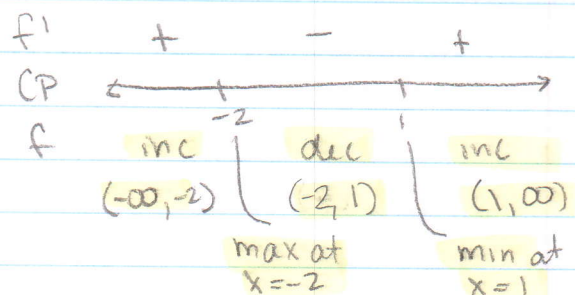 f' + - +
CP
-2 1
f inc dec inc
(-∞,-2) (-2,1) (1,∞)
max at min at
x=-2 x=1